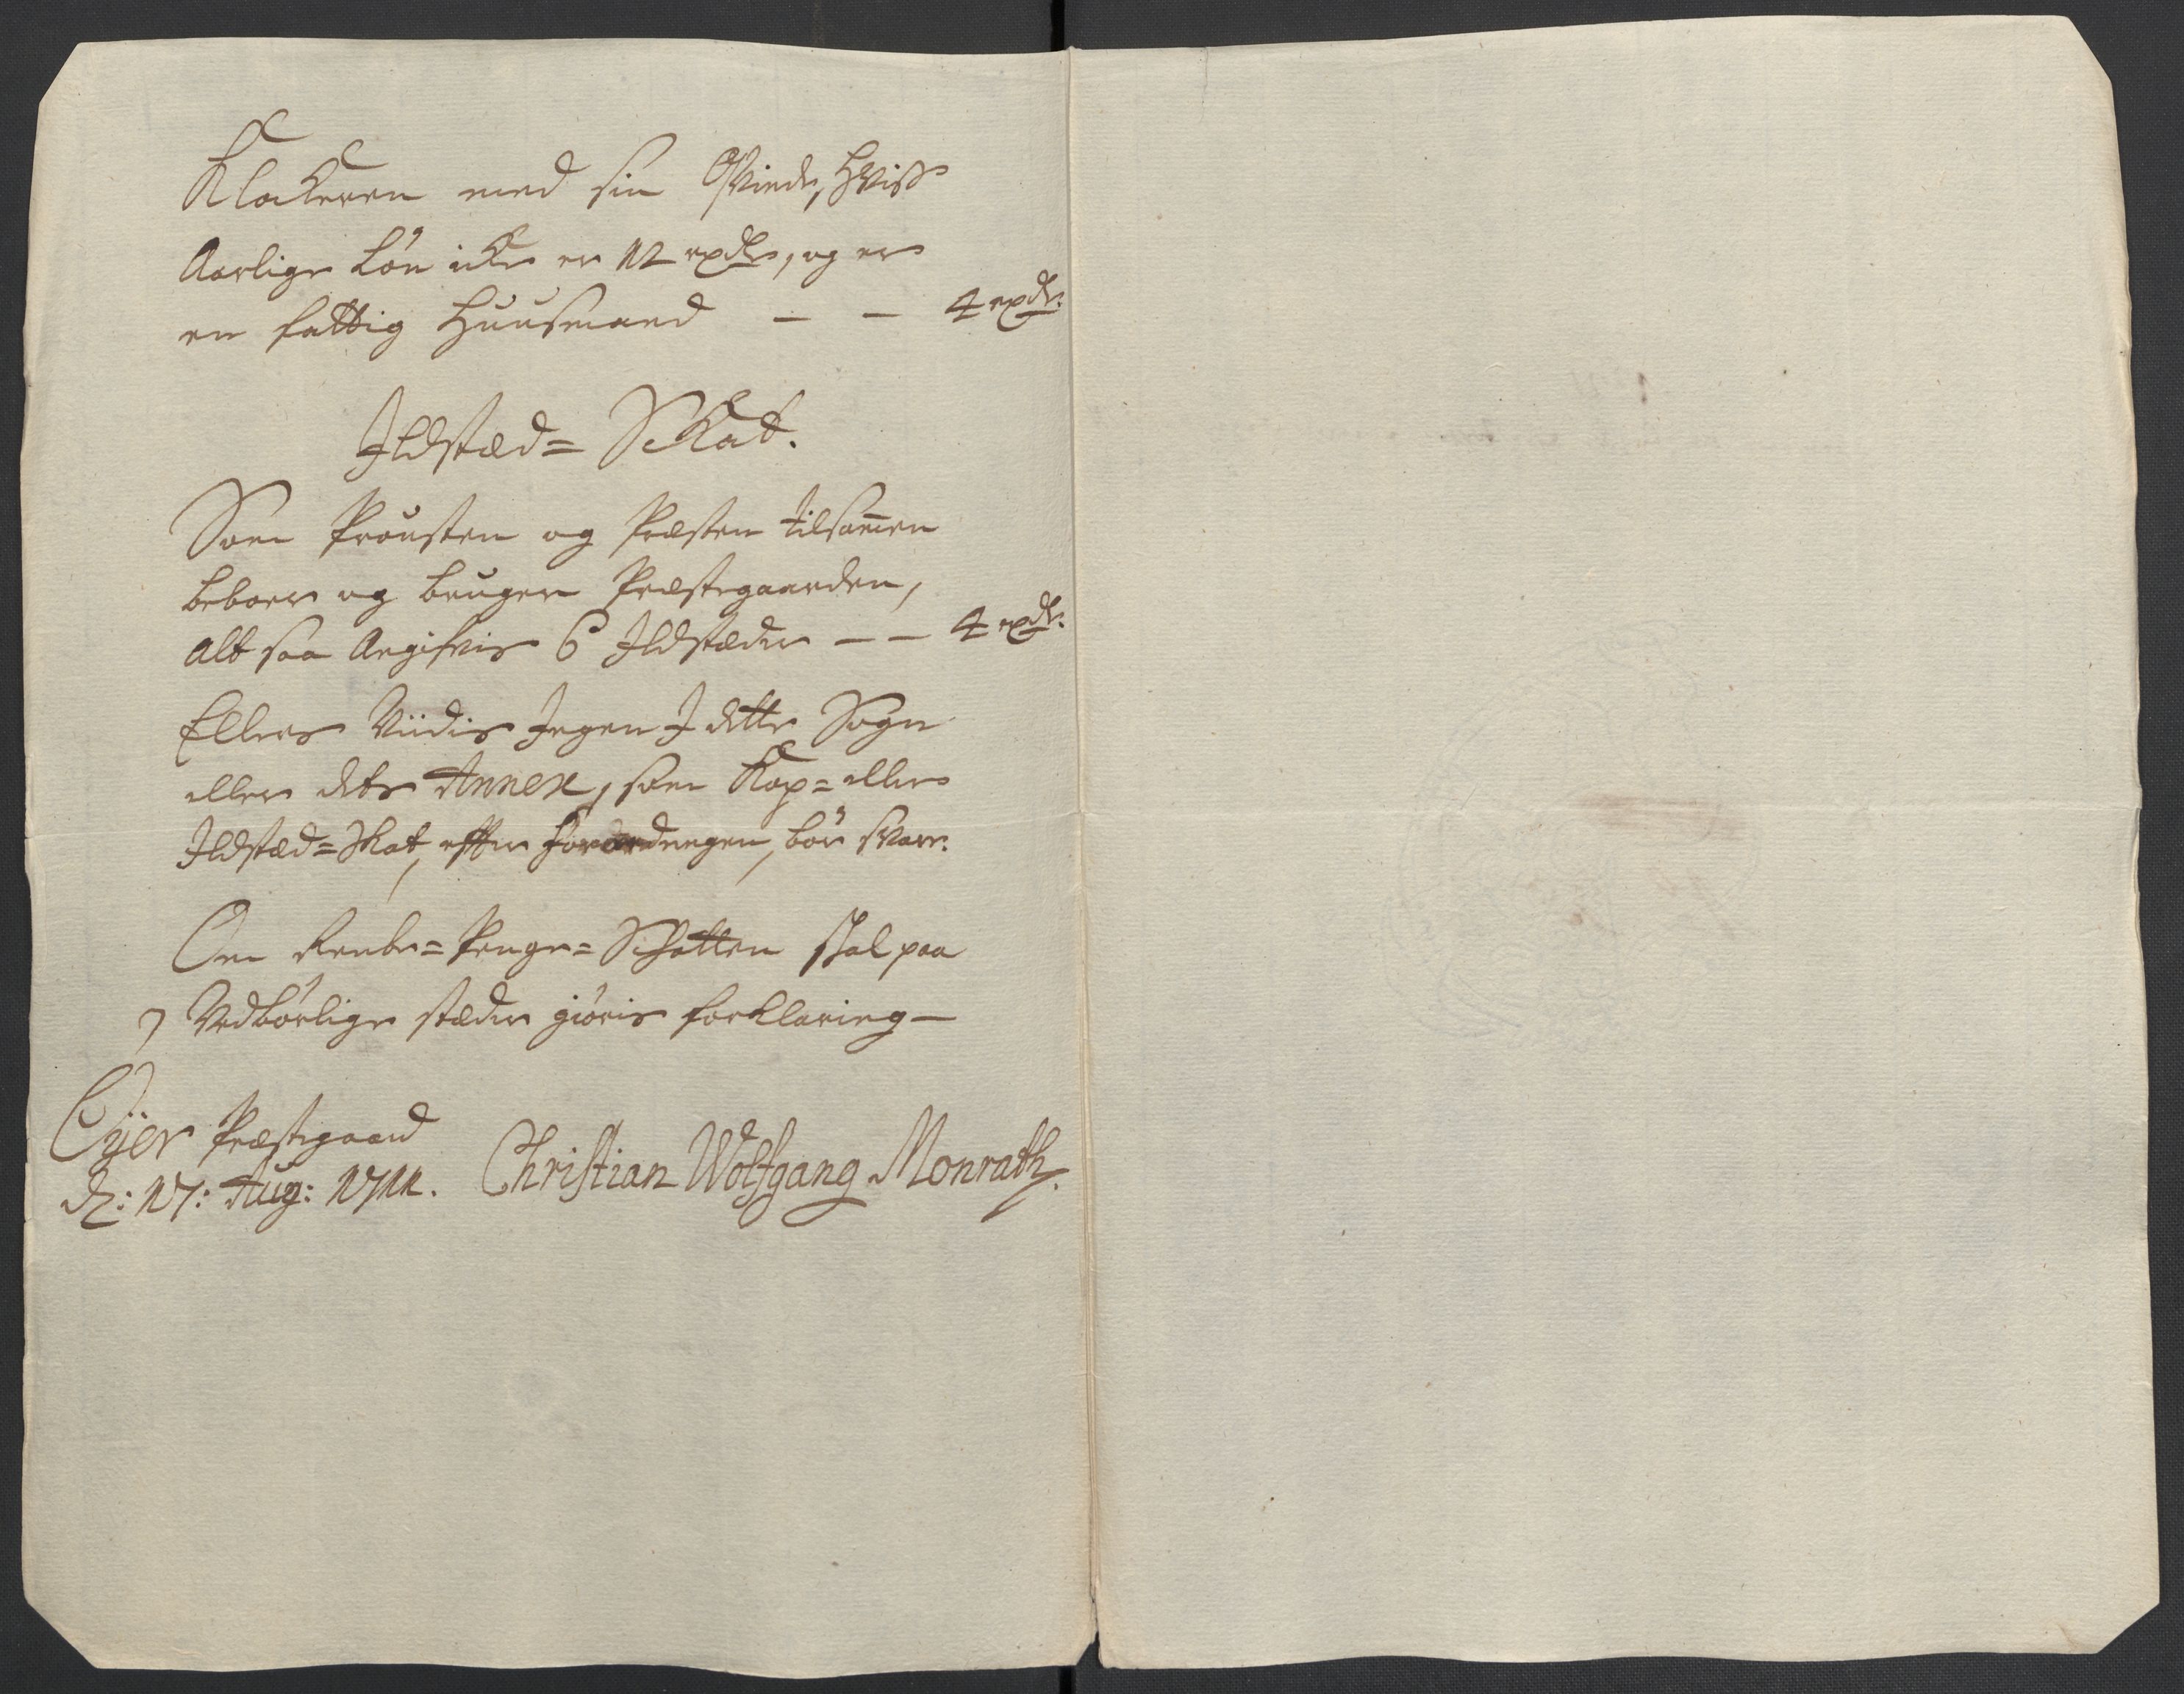 Klockeren med sin Qvinde, hviss
Aarlige Løn icke er 12 rxdr, og er
en fattig Huusmand — — 4 rxdr.
Ildstæd= Skat.
Som Prousten og Præsten tilsam̄en
beboer og bruger Præstegaarden,
alt saa Angifvis 6 Ildstæder — — 4 rxdr.
Ellers Viidis Ingen I dette Sogn
eller dets Annex, som Kop= eller
Ildstæd=Skat, efter Forordningen, bør svare.
Om Rente=Penge=Schatten skal paa
Vedbørlige stæder giøris forklaring—
Øyer Præstegaard
d: 17: Aug: 1711. Christian Wolfgang Monrath.